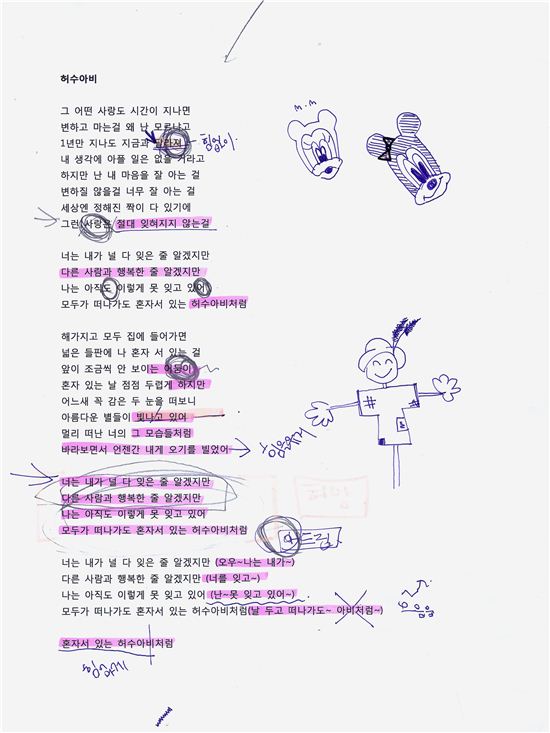 허수아비
M.M
그 어떤 사랑도 시간이 지나면
변하고 마는걸 왜 난 모르냐고
1년만 지나도 지금과 달라져
힘없이
내 생각에 아플 일은 없을 거라고
하지만 난 내 마음을 잘 아는 걸
변하질 않을걸 너무 잘 아는 걸
세상엔 정해진 짝이 다 있기에
그런 사랑은 절대 잊혀지지 않는걸
너는 내가 널 다 잊은 줄 알겠지만
다른 사람과 행복한 줄 알겠지만
나는 아직도 이렇게 못 잊고 있어
모두가 떠나가도 혼자서 있는 허수아비처럼
해가지고 모두 집에 들어가면
넓은 들판에 나 혼자 서 있는 걸
앞이 조금씩 안 보이는 어둠이
혼자 있는 날 점점 두렵게 하지만
어느새 꼭 감은 두 눈을 떠보니
아름다운 별들이 빛나고 있어
멀리 떠난 너의 그 모습들처럼
바라보면서 언젠간 내게 오기를 빌었어
너는 내가 널 다 잊은 줄 알겠지만
다른 사람과 행복한 줄 알겠지만
나는 아직도 이렇게 못 잊고 있어
모두가 떠나가도 혼자서 있는 허수아비처럼
너는 내가 널 다 잊은 줄 알겠지만 (오우~나는 내가~)
다른 사람과 행복한 줄 알겠지만 (너를 잊고~)
나는 아직도 이렇게 못 잊고 있어 (난~못 잊고 있어~)
모두가 떠나가도 혼자서 있는 허수아비처럼(날 두고 떠나가도~ 아비처럼~)
혼자서 있는 허수아비처럼